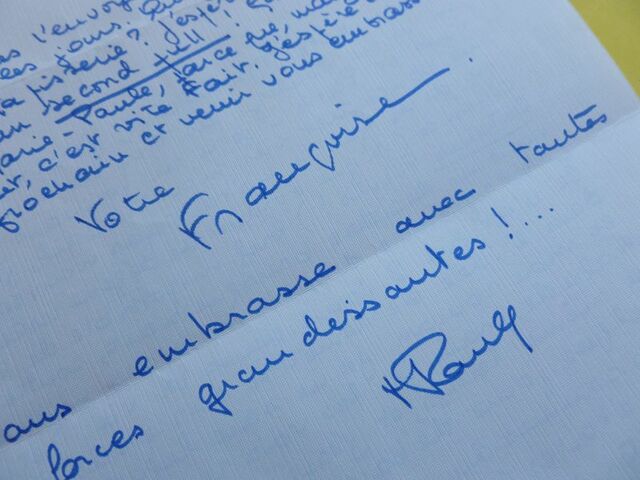 l'envoy
jours.
tapisserie? j'espère
second
Marie-Paule, parce que, mais
c'est vite fait. J'espère
prochain et venir vous embrasser
Votre Françoise.
ous embrasse avec toutes
forces grandissantes!...
MPaule